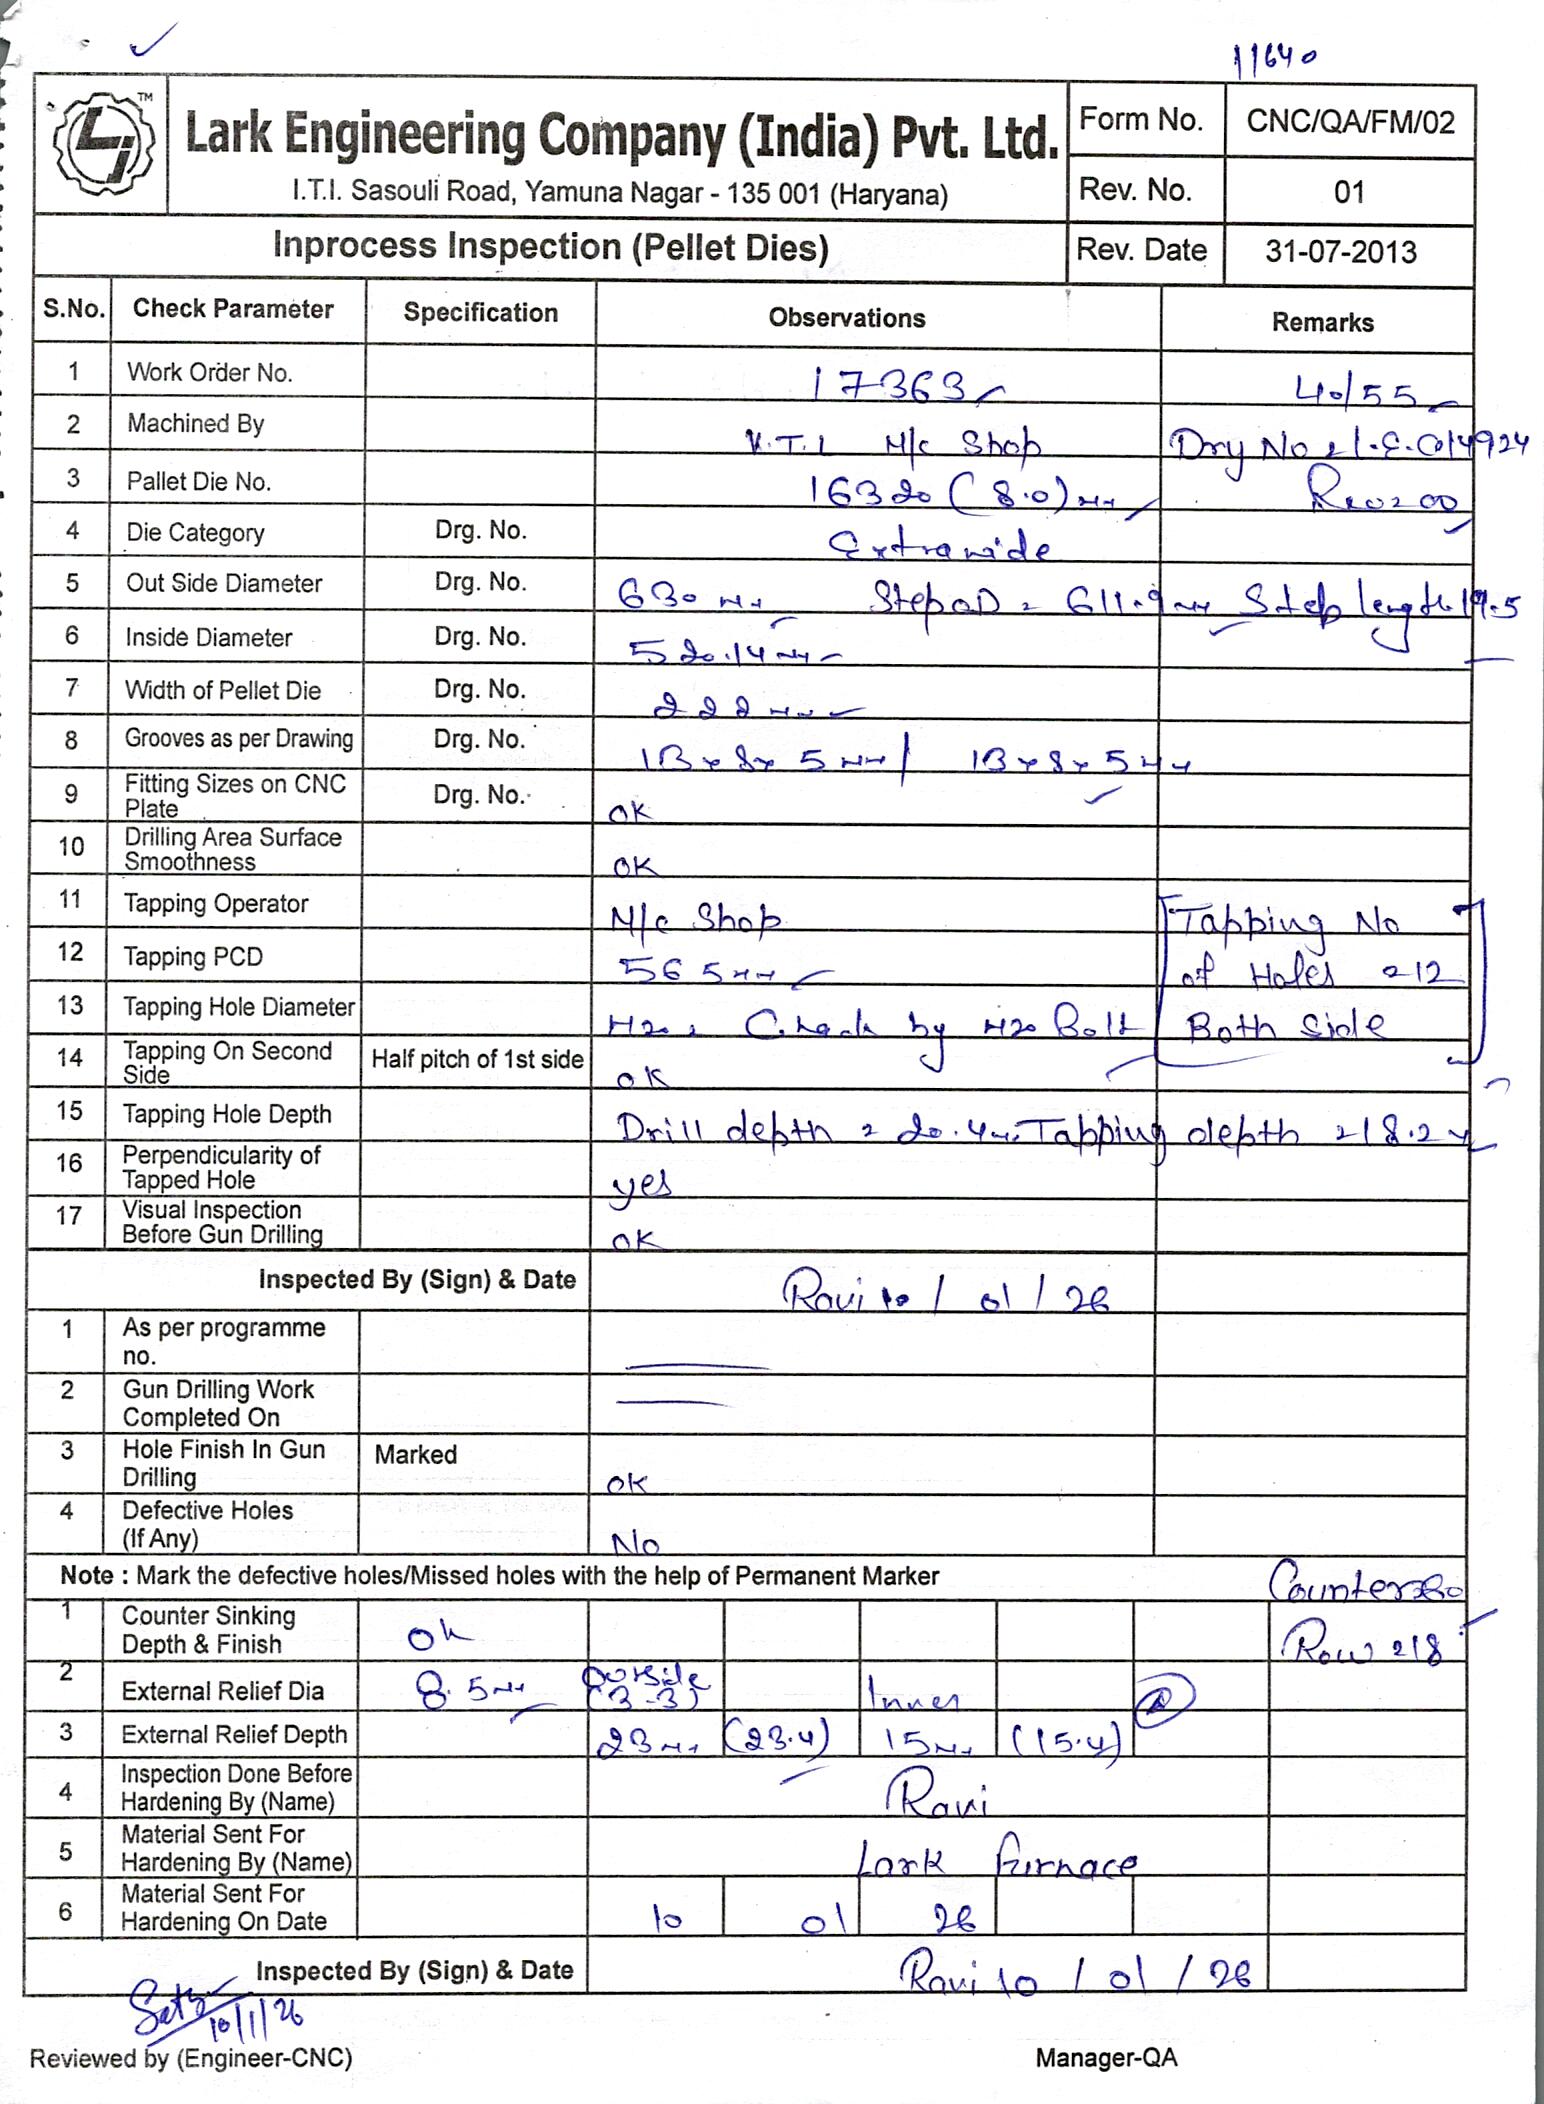 11640
TM
Lark Engineering Company (India) Pvt. Ltd.
I.T.I. Sasouli Road, Yamuna Nagar - 135 001 (Haryana)
Form No. CNC/QA/FM/02
Rev. No. 01
Inprocess Inspection (Pellet Dies) Rev. Date 31-07-2013
S.No. Check Parameter Specification Observations Remarks
1 Work Order No. 17363 40/55
2 Machined By V.T.L M/c Shop Drg No
3 Pallet Die No. 16320 (8.0)mm Rev=00
4 Die Category Drg. No. Extrawide
5 Out Side Diameter Drg. No. 630 mm Step OD = 611.9mm Step length 19.5
6 Inside Diameter Drg. No. 520.14mm
7 Width of Pellet Die Drg. No. 222mm
8 Grooves as per Drawing Drg. No. 13x8x5mm / 13x8x5mm
9 Fitting Sizes on CNC Plate Drg. No. OK
10 Drilling Area Surface Smoothness OK
11 Tapping Operator M/c Shop Tapping No
12 Tapping PCD 565mm of Holes =12
13 Tapping Hole Diameter M20 = Check by M20 Bolt Both Side
14 Tapping On Second Side Half pitch of 1st side OK
15 Tapping Hole Depth Drill depth = 20.4mm Tapping depth =18.2m
16 Perpendicularity of Tapped Hole yes
17 Visual Inspection Before Gun Drilling OK
Inspected By (Sign) & Date Ravi 10/01/26
1 As per programme no.
2 Gun Drilling Work Completed On
3 Hole Finish In Gun Drilling Marked OK
4 Defective Holes (If Any) No
Note : Mark the defective holes/Missed holes with the help of Permanent Marker
1 Counter Sinking Depth & Finish Ok Row =18
2 External Relief Dia 8.5mm Outside (3-3) Inner
3 External Relief Depth 23mm (23.4) 15mm (15.4)
4 Inspection Done Before Hardening By (Name) Ravi
5 Material Sent For Hardening By (Name) Lark Furnace
6 Material Sent For Hardening On Date 10 01 26
Inspected By (Sign) & Date Ravi 10/01/26
10/1/26
Reviewed by (Engineer-CNC) Manager-QA